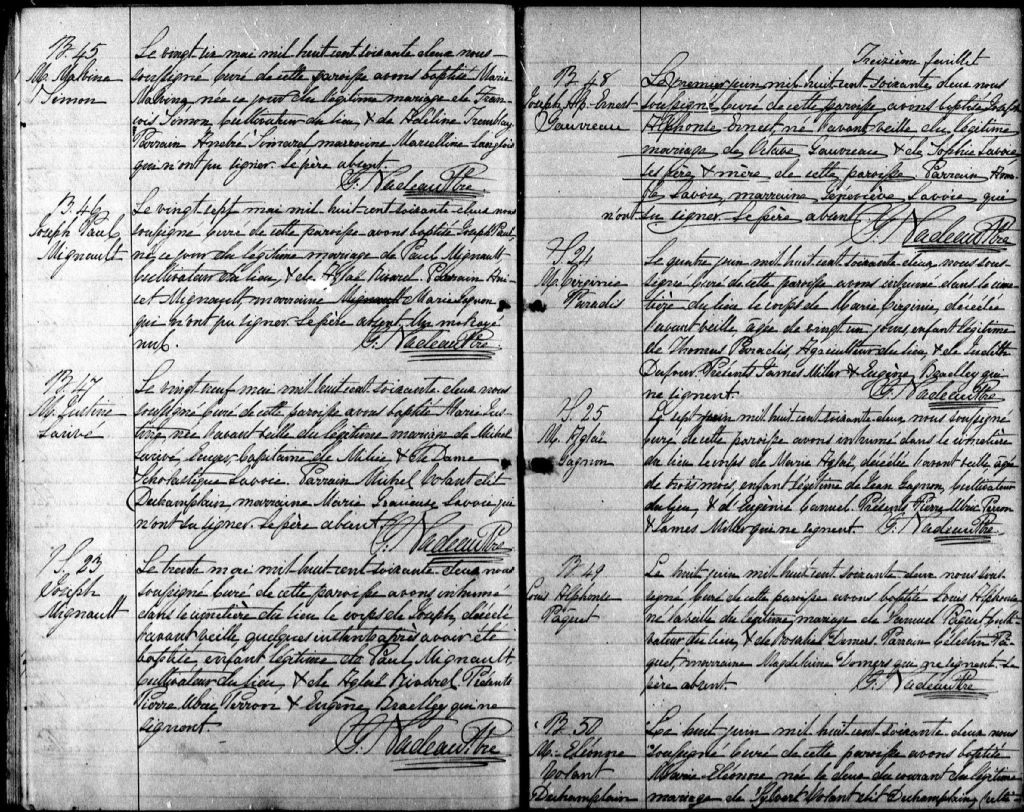 B. 45
M. Malvina
Simon
Le vingt six mai mil huit cent soixante deux nous
soussigné Curé de cette paroisse avons baptisé Marie
Malvina, née ce jour du légitime mariage de Fran-
çois Simon Cultivateur du lieu, & de Tremblay
Parrain André Simard marraine Marcelline Langlois
qui n'ont pu signer. Le père absent.
G. Nadeau Ptre
B. 46
Joseph Paul
Mignault
Le vingt sept mai mil huit cent soixante deux nous
soussigné Curé de cette paroisse avons baptisé Joseph Paul,
né ce jour du légitime mariage de Paul Mignault
cultivateur du lieu, & de Aglaé Parrain
Mignault, marraine Marie
qui n'ont pu signer. Le père absent. Un mot rayé
nul.
G. Nadeau Ptre
B. 47
M. Justine
Larivé
Le vingt neuf mai mil huit cent soixante deux nous
soussigné Curé de cette paroisse avons baptisé Marie Jus-
tine, née l'avant veille du légitime mariage de Michel
Larivé, Capitaine de Milice & de Dame
Scholastique Lavoie. Parrain Michel Volant dit
Duchamplain, marraine Marie Gracieuse Lavoie qui
n'ont su signer. Le père absent.
G. Nadeau Ptre
S. 23
Joseph
Mignault
Le trente mai mil huit cent soixante deux nous
soussigné Curé de cette paroisse avons inhumé
dans le cimetière du lieu le corps de Joseph, décédé
l'avant veille, quelques instants après avoir été
baptisé, enfant légitime de Paul Mignault,
Cultivateur du lieu, & de Aglaé Présents
Pierre Ulric Perron & Eugène Braelley qui ne
signent.
G. Nadeau Ptre
Treizième feuillet
B. 48
Joseph Al. Ernest
Gauvreau
Le premier juin mil huit cent soixante deux nous
soussigné Curé de cette paroisse avons baptisé Joseph
Alphonse Ernest, né l'avant veille du légitime
mariage de Octave Gauvreau & de Sophie Lavoie
ses père & mère de cette paroisse. Parrain
Lavoie, marraine Géneviève Lavoie qui
n'ont su signer. Le père absent.
G. Nadeau Ptre
S. 24
M. Virginie
Paradis
Le quatre juin mil huit cent soixante deux nous sous-
signé Curé de cette paroisse avons inhumé dans le cime-
tière du lieu le corps de Marie Virginie, décédée
l'avant veille agée de vingt un jours, enfant légitime
de Thomas Paradis, Agriculteur du lieu, & de Judith
Dufour. Présents James Miller & Eugène Braelley qui
ne signent.
G. Nadeau Ptre
S. 25
M. Aglaë
Gagnon
Le sept juin mil huit cent soixante deux nous soussigné
Curé de cette paroisse avons inhumé dans le cimetière
du lieu le corps de Marie Aglaë, décédée l'avant veille, agée
de trois mois, enfant légitime de Jean Gagnon, Cultivateur
du lieu, & d'Eugènie Canuel. Présents Pierre Ulric Perron
& James Miller qui ne signent.
G. Nadeau Ptre
B. 49
Louis Alphonse
Pâquet
Le huit juin mil huit cent soixante deux nous sous-
signé Curé de cette paroisse avons baptisé Louis Alphonse
né la veille du légitime mariage de Samuel Pâquet Culti-
vateur du lieu, & de Rosalie Demers. Parrain Célestin Pâ-
quet, marraine Magdelaine Demers qui ne signent. Le
père absent.
G. Nadeau Ptre
B. 50
M. Eléonne
Volant
Duchamplain
Le huit juin mil huit cent soixante deux nous
soussigné Curé de cette paroisse avons baptisé
Marie Eléonore née le deux du courant du légitime
mariage de Sylvert Volant dit Duchamplain, culti-